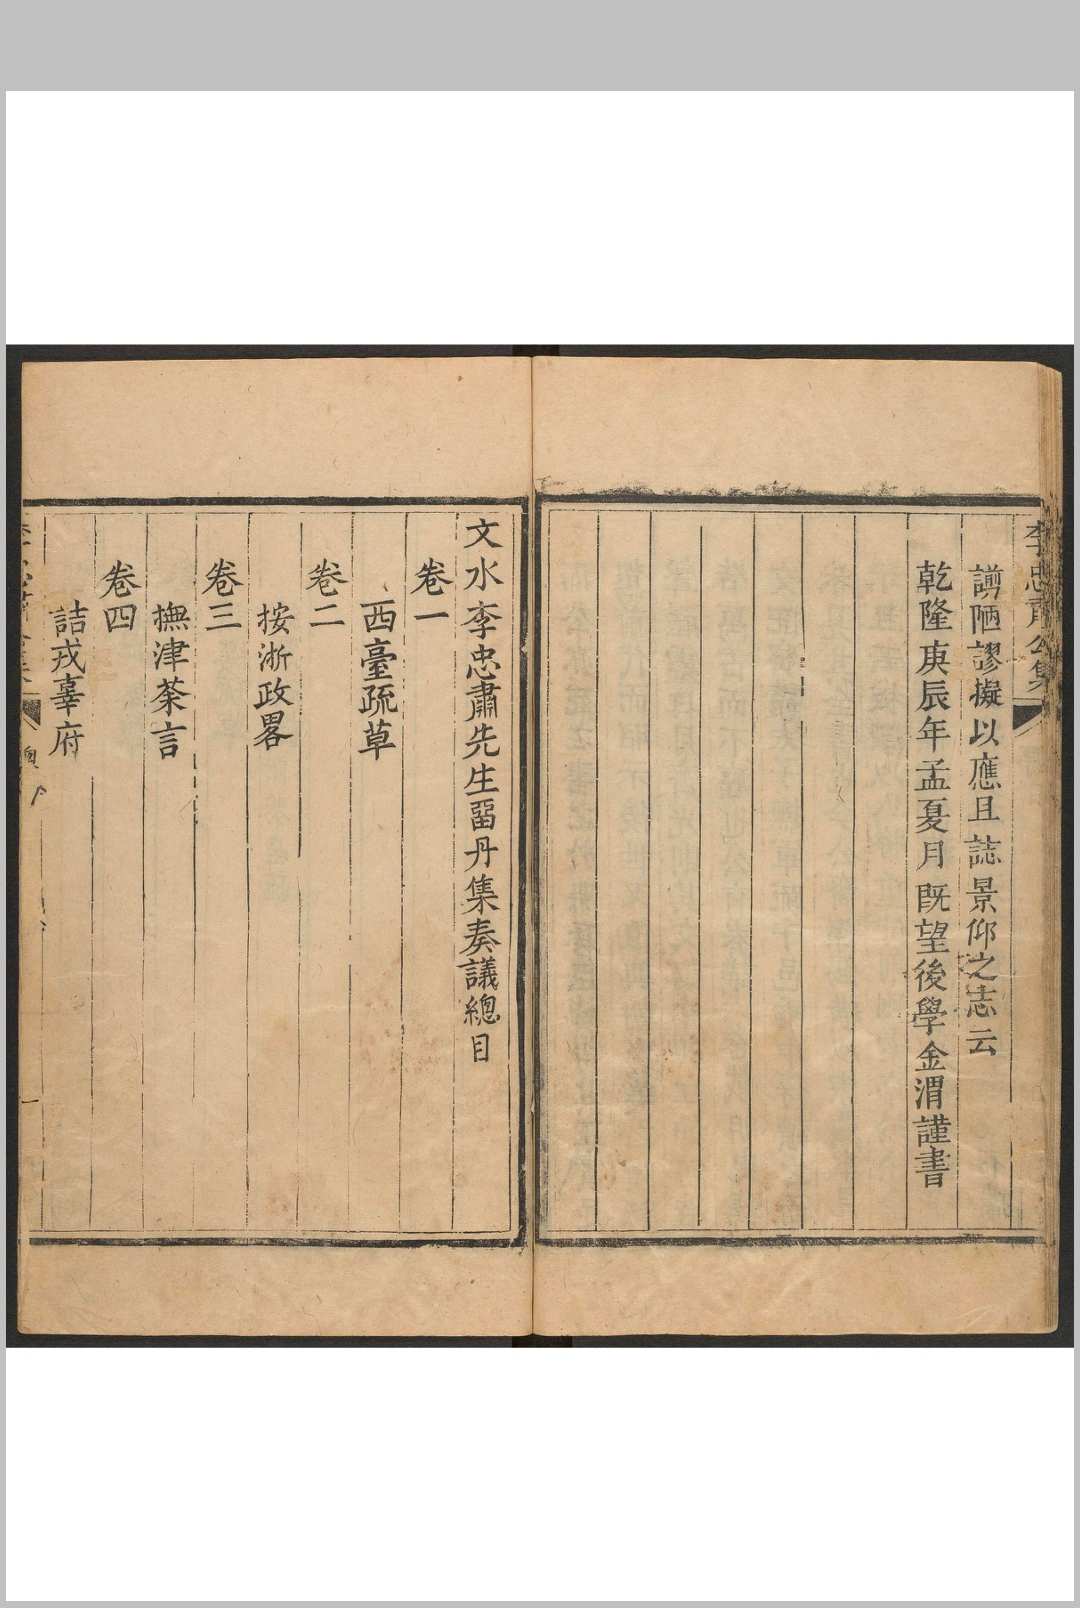 李忠肅公集
謭陋謬擬以應且誌景仰之志云
乾隆庚辰年孟夏月既望後學金渭謹書
文水李忠肅先生畱丹集奏議總目
卷一
西臺疏草
卷二
按浙政畧
卷三
撫津荼言
卷四
詰戎辜府
一